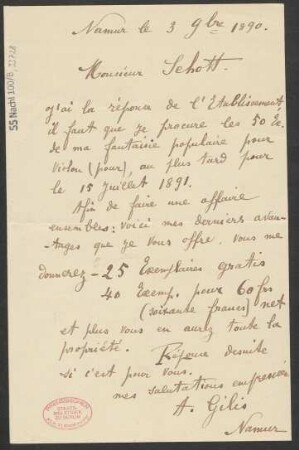 Namur le 3 9bre 1890.
Monsieur Schott.
j'ai la réponse de l'Etablissement
il faut que je procure les 50 Ex.
de ma fantaisie populaire pour
violon (pour), au plus tard pour
le 15 Juillet 1891.
Afin de faire une affaire
ensembles: voici mes derniers avan-
-tages que je vous offre, vous me
donnerez - 25 Exemplaires gratis
40 Exemp. pour 60 frs
(soixante francs) net
et plus vous en aurez toute la
propriété. Réponse desuite
si c'est pour vous.
mes salutations empressées
A. Gilis
Namur
55 Nachl 100/B,